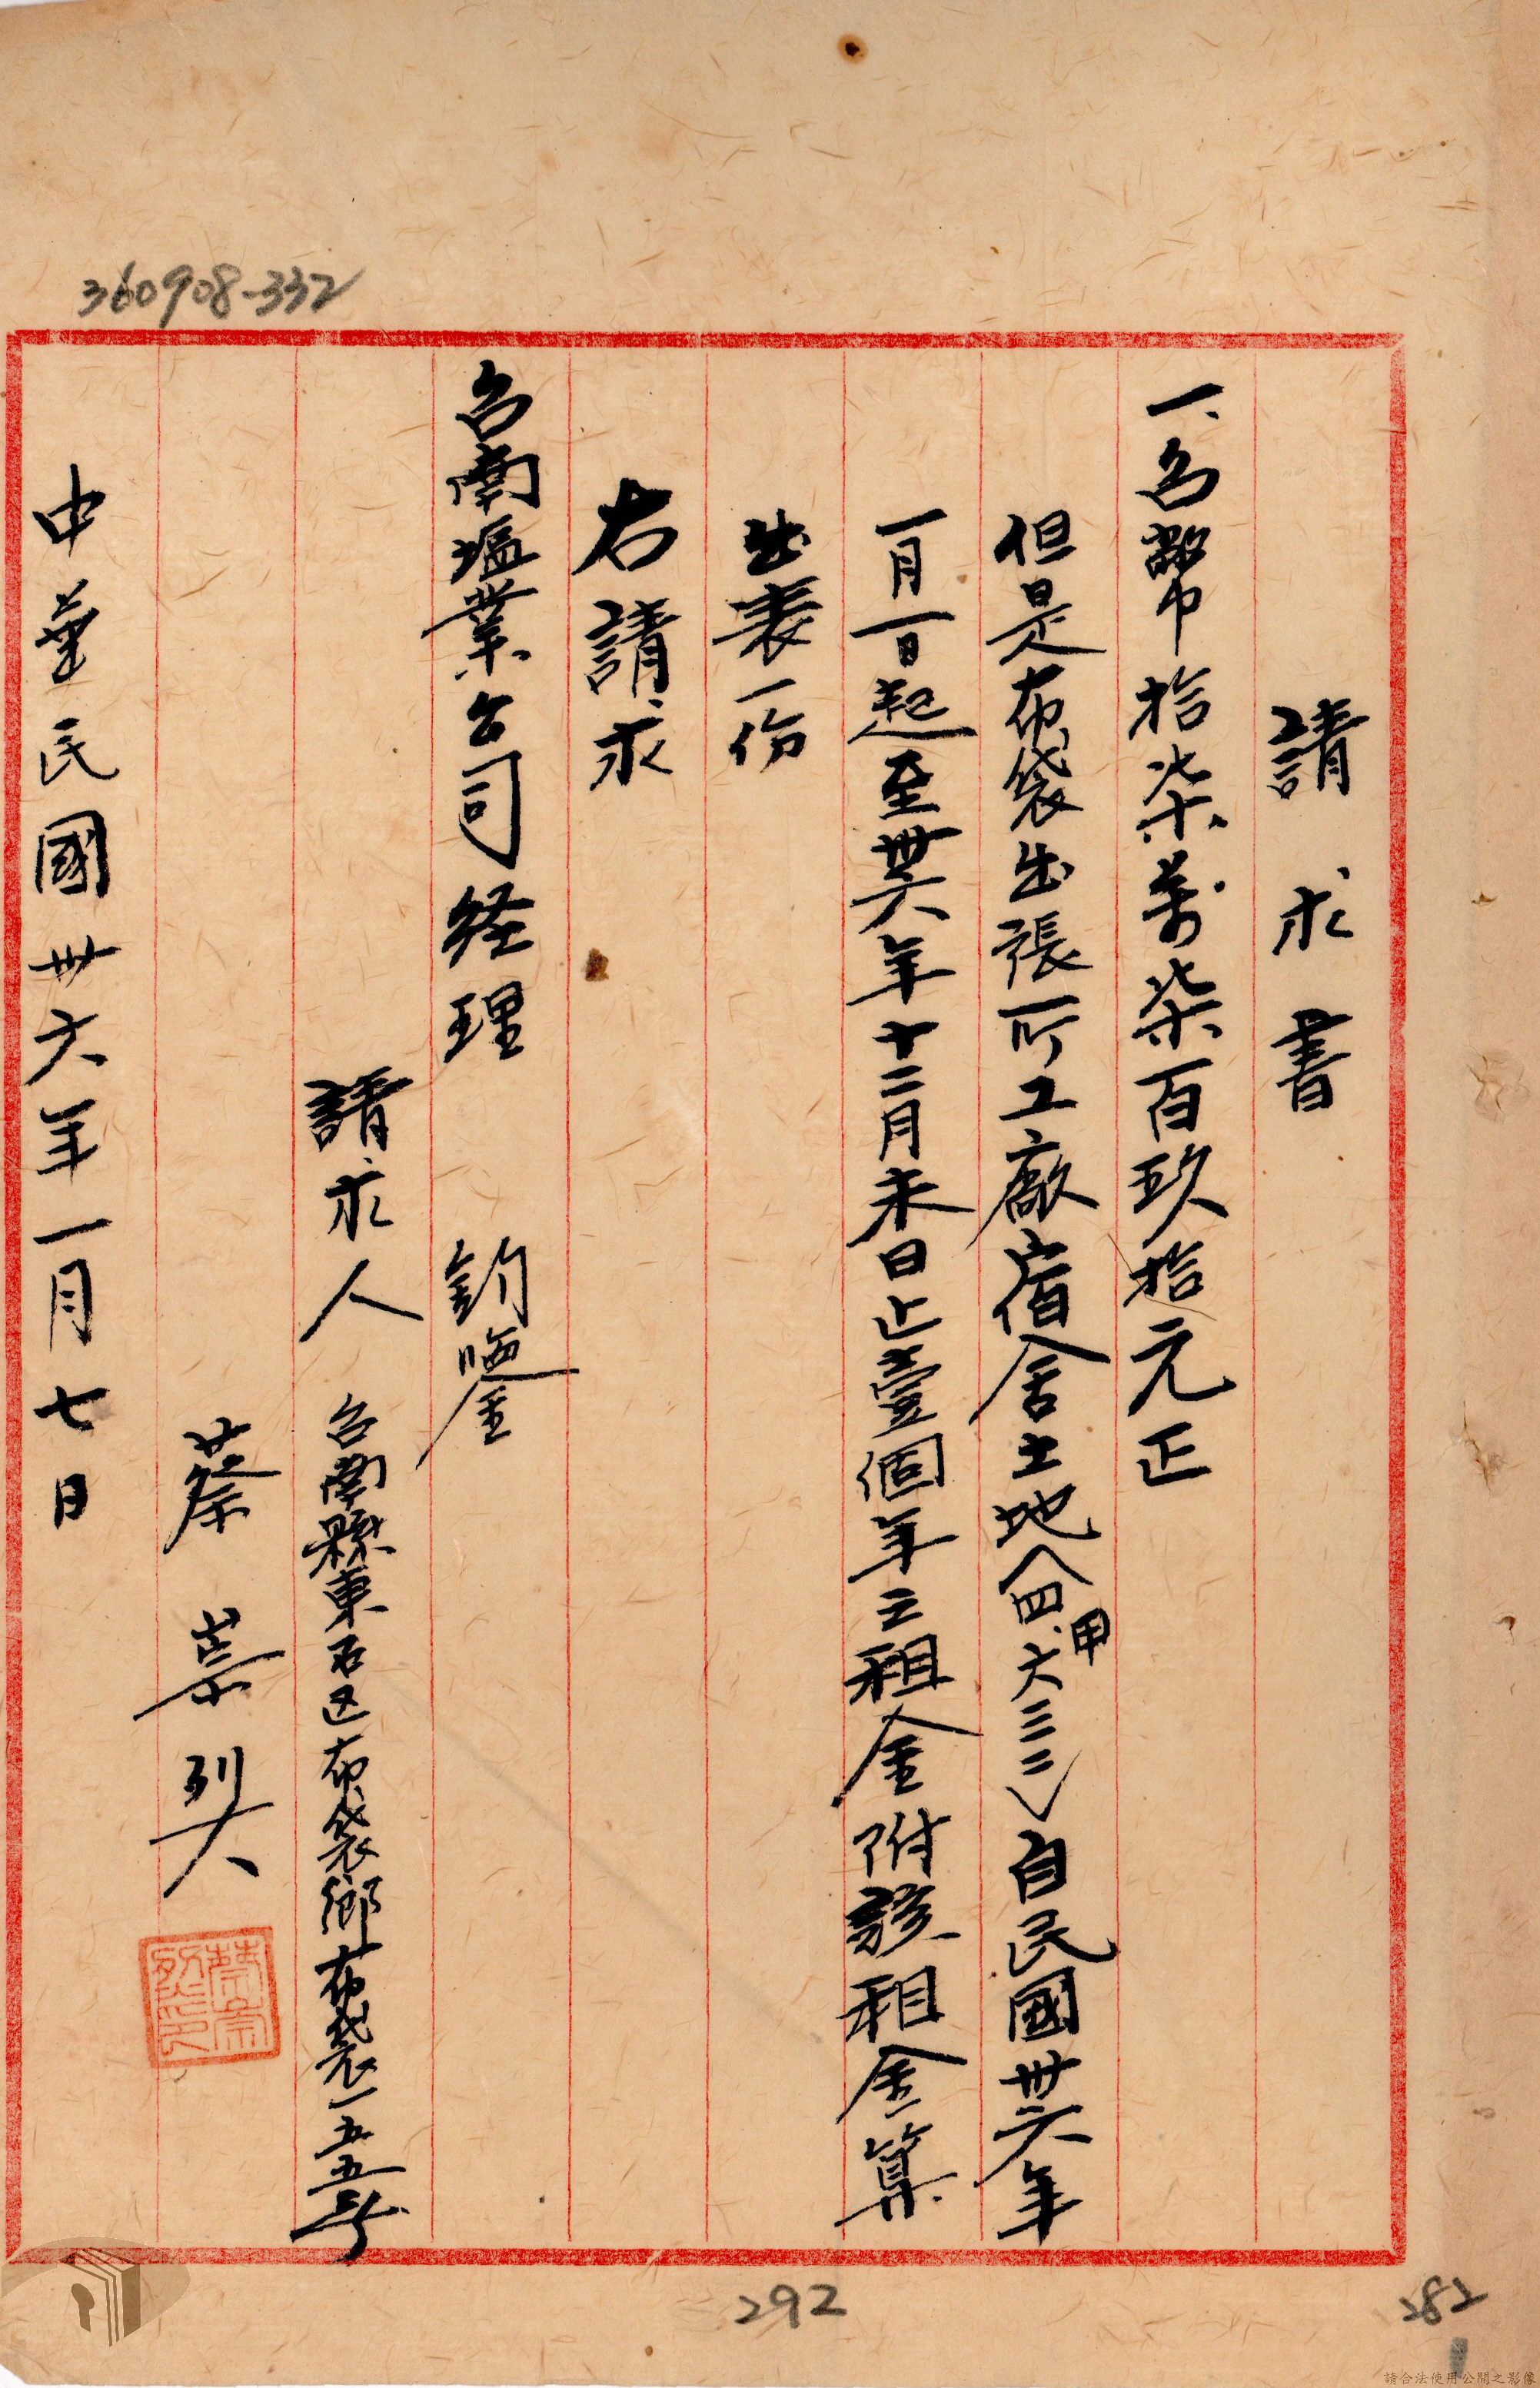 360908-332
請求書
一、台幣拾柒萬柒百玖拾元正
但是布袋出張所工廠宿舍土地(四甲、六三三二)自民國卅六年
一月一日起至卅六年十二月末日止壹個年之租金附該租金算
出表一份
右請求
台南塩業公司経理 鈞鑒
請求人 台南縣東石区布袋鄉布袋一五五号
蔡崇烈
中華民國卅六年一月七日
292
282
請合法使用公開之影像